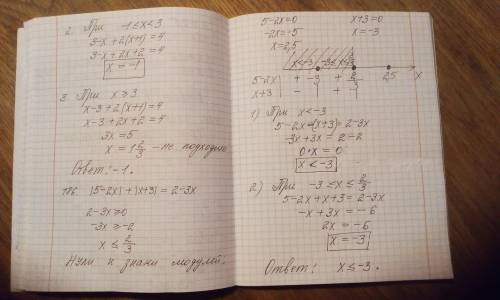 2. При -1≤x<3
3-x+2(x+1)=4
3-x+2x+2=4
x=-1
3. При x≥3
x-3+2(x+1)=4
x-3+2x+2=4
3x=5
x=1 2/3 - не подходит
Ответ: -1.
|5-2x|+|x+3|=2-3x
2-3x≥0
-3x≥-2
x≤2/3
Нули и знаки модулей:
5-2x=0
-2x=-5
x=2,5
x+3=0
x=-3
x<-3
-3 2/3 2,5 x
5-2x + + +
x+3 - + +
1) При x<-3
5-2x-(x+3)=2-3x
-3x+3x=2-2
0·x=0
x<-3
2) При -3≤x≤2/3
5-2x+x+3=2-3x
-x+3x=-6
2x=-6
x=-3
Ответ: x≤-3.